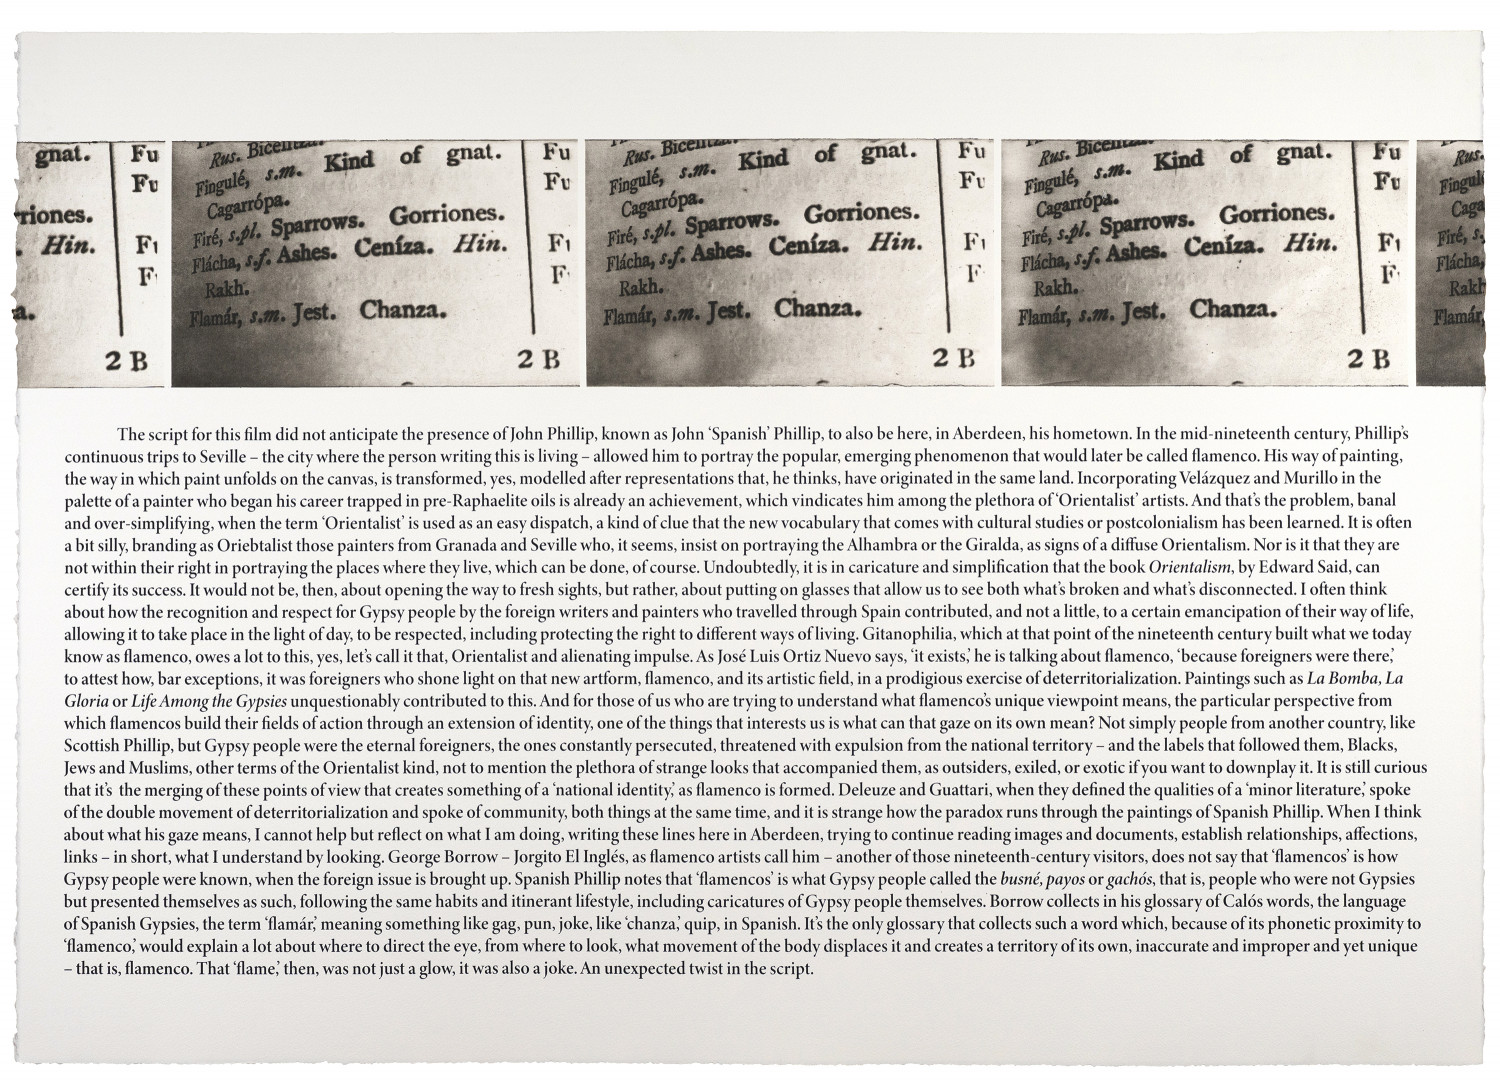 gnat. Fu
Fu
riones.
Hin. F
F
a.
2 B
Rus. Kind of gnat. Fu
Fingulé, s.m. Fu
Cagarrópa.
Firé, s.pl. Sparrows. Gorriones.
Flácha, s.f. Ashes. Ceníza. Hin. F
Rakh. F
Flamár, s.m. Jest. Chanza.
2 B
Rus. Kind of gnat. Fu
Fingulé, s.m. Fu
Cagarrópa.
Firé, s.pl. Sparrows. Gorriones.
Flácha, s.f. Ashes. Ceníza. Hin. F
Rakh. F
Flamár, s.m. Jest. Chanza.
2 B
Rus. Kind of gnat. Fu
Fingulé, s.m. Fu
Cagarrópa.
Firé, s.pl. Sparrows. Gorriones.
Flácha, s.f. Ashes. Ceníza. Hin. F
Rakh. F
Flamár, s.m. Jest. Chanza.
2 B
Rus.
Fingul
Caga
Firé, s.
Flácha,
Rakh
Flamár,
The script for this film did not anticipate the presence of John Phillip, known as John ‘Spanish’ Phillip, to also be here, in Aberdeen, his hometown. In the mid-nineteenth century, Phillip’s
continuous trips to Seville – the city where the person writing this is living – allowed him to portray the popular, emerging phenomenon that would later be called flamenco. His way of painting,
the way in which paint unfolds on the canvas, is transformed, yes, modelled after representations that, he thinks, have originated in the same land. Incorporating Velázquez and Murillo in the
palette of a painter who began his career trapped in pre-Raphaelite oils is already an achievement, which vindicates him among the plethora of ‘Orientalist’ artists. And that’s the problem, banal
and over-simplifying, when the term ‘Orientalist’ is used as an easy dispatch, a kind of clue that the new vocabulary that comes with cultural studies or postcolonialism has been learned. It is often
a bit silly, branding as Oriebtalist those painters from Granada and Seville who, it seems, insist on portraying the Alhambra or the Giralda, as signs of a diffuse Orientalism. Nor is it that they are
not within their right in portraying the places where they live, which can be done, of course. Undoubtedly, it is in caricature and simplification that the book Orientalism, by Edward Said, can
certify its success. It would not be, then, about opening the way to fresh sights, but rather, about putting on glasses that allow us to see both what’s broken and what’s disconnected. I often think
about how the recognition and respect for Gypsy people by the foreign writers and painters who travelled through Spain contributed, and not a little, to a certain emancipation of their way of life,
allowing it to take place in the light of day, to be respected, including protecting the right to different ways of living. Gitanophilia, which at that point of the nineteenth century built what we today
know as flamenco, owes a lot to this, yes, let’s call it that, Orientalist and alienating impulse. As José Luis Ortiz Nuevo says, ‘it exists,’ he is talking about flamenco, ‘because foreigners were there,’
to attest how, bar exceptions, it was foreigners who shone light on that new artform, flamenco, and its artistic field, in a prodigious exercise of deterritorialization. Paintings such as La Bomba, La
Gloria or Life Among the Gypsies unquestionably contributed to this. And for those of us who are trying to understand what flamenco’s unique viewpoint means, the particular perspective from
which flamencos build their fields of action through an extension of identity, one of the things that interests us is what can that gaze on its own mean? Not simply people from another country, like
Scottish Phillip, but Gypsy people were the eternal foreigners, the ones constantly persecuted, threatened with expulsion from the national territory – and the labels that followed them, Blacks,
Jews and Muslims, other terms of the Orientalist kind, not to mention the plethora of strange looks that accompanied them, as outsiders, exiled, or exotic if you want to downplay it. It is still curious
that it’s the merging of these points of view that creates something of a ‘national identity,’ as flamenco is formed. Deleuze and Guattari, when they defined the qualities of a ‘minor literature,’ spoke
of the double movement of deterritorialization and spoke of community, both things at the same time, and it is strange how the paradox runs through the paintings of Spanish Phillip. When I think
about what his gaze means, I cannot help but reflect on what I am doing, writing these lines here in Aberdeen, trying to continue reading images and documents, establish relationships, affections,
links – in short, what I understand by looking. George Borrow – Jorgito El Inglés, as flamenco artists call him – another of those nineteenth-century visitors, does not say that ‘flamencos’ is how
Gypsy people were known, when the foreign issue is brought up. Spanish Phillip notes that ‘flamencos’ is what Gypsy people called the busné, payos or gachós, that is, people who were not Gypsies
but presented themselves as such, following the same habits and itinerant lifestyle, including caricatures of Gypsy people themselves. Borrow collects in his glossary of Calós words, the language
of Spanish Gypsies, the term ‘flamár,’ meaning something like gag, pun, joke, like ‘chanza,’ quip, in Spanish. It’s the only glossary that collects such a word which, because of its phonetic proximity to
‘flamenco,’ would explain a lot about where to direct the eye, from where to look, what movement of the body displaces it and creates a territory of its own, inaccurate and improper and yet unique
– that is, flamenco. That ‘flame,’ then, was not just a glow, it was also a joke. An unexpected twist in the script.